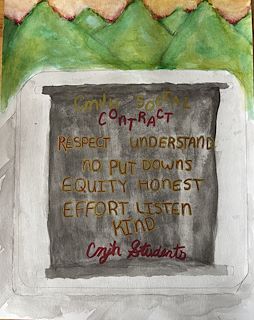 CMJH SOCIAL
CONTRACT
RESPECT UNDERSTAND
NO PUT DOWNS
EQUITY HONEST
EFFORT LISTEN
KIND
Cmjh Students